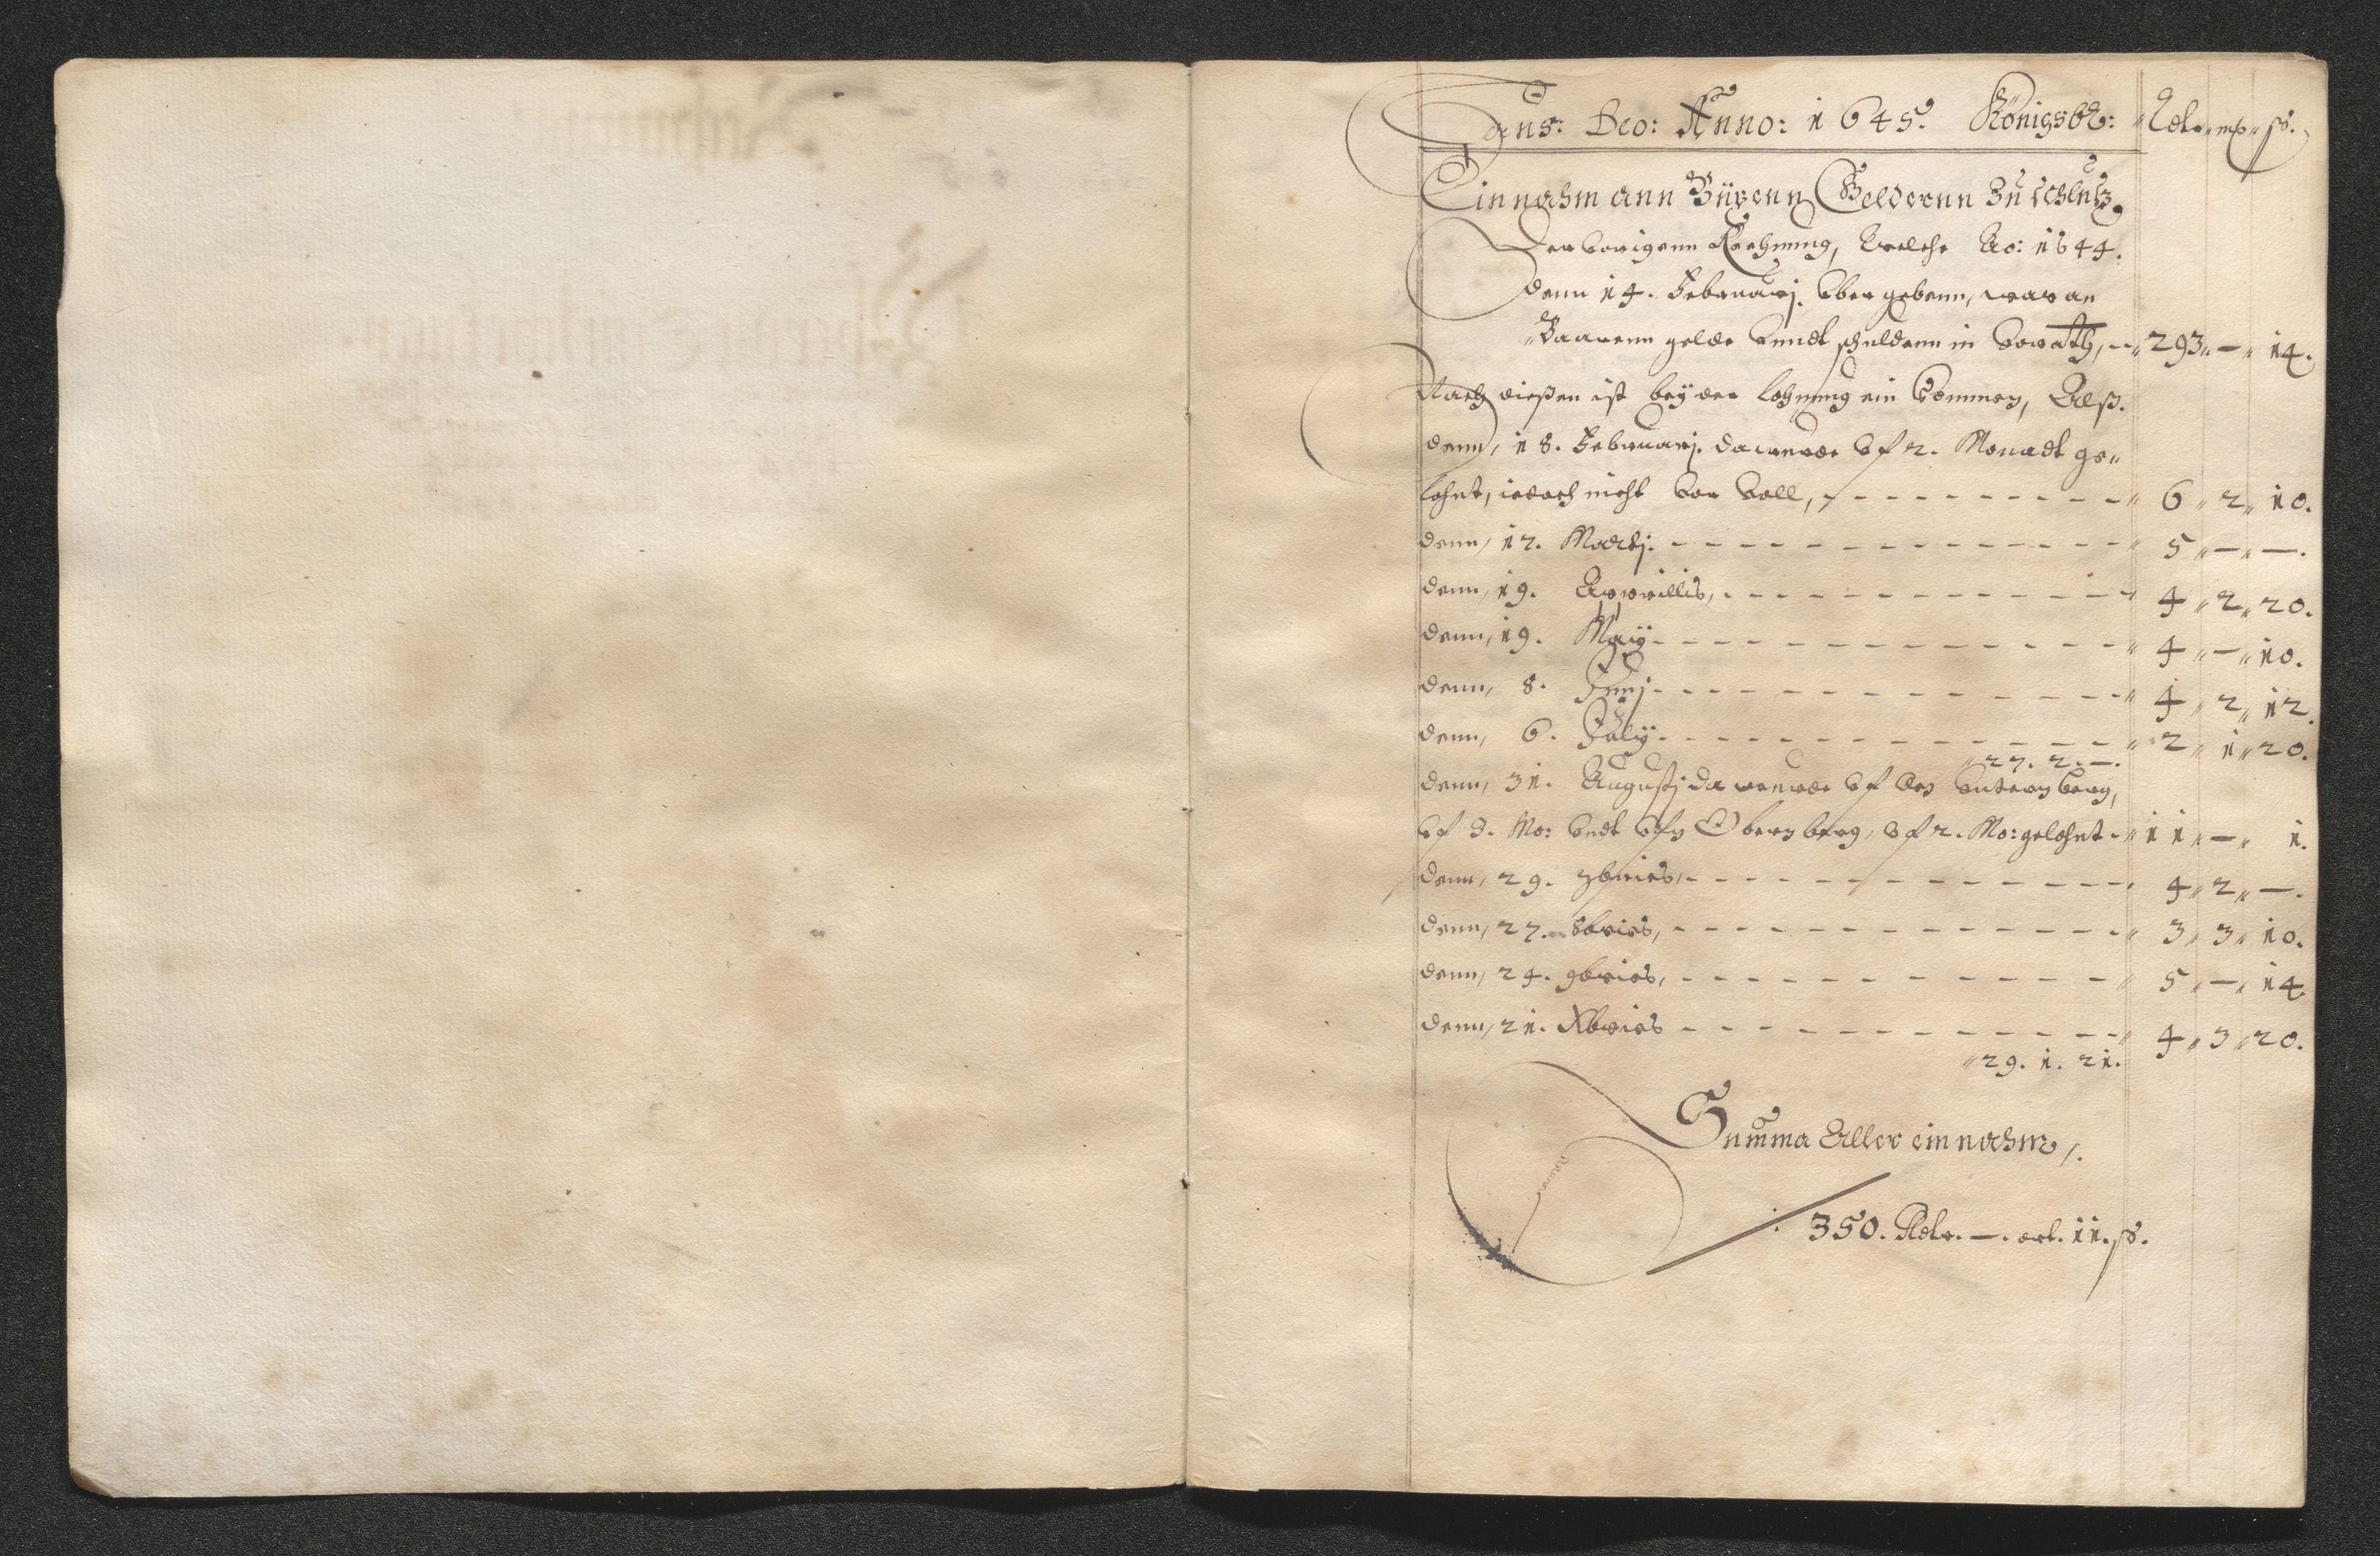 Laus: Deo: Anno: 1645. Königsbr: Rdlr mʒ ß.
Einnahm ann Büxenn Geldernn
Der vorigenn Rechnung, welche Ao: 1644.
denn 14. Februarj. vbergebenn, war an
Baarenn gelde vnndt schuldenn in vorath, 293 — 14.
Nach diesen ist bey der lohnung ein kommen, Alß.
denn, 18. Februarj. da wurde vf 2. Monadt ge-
lohnt, iedoch nicht vor voll, 6 2 10.
denn, 12. Martj. 5 — —.
denn, 19. Apprillis, 4 2 20.
denn, 19. Maij 4 — 10.
denn, 8. Junj. 4 2 12.
denn, 6. Julij 2 1 20.
27. 2. —.
denn, 31. Augustj da wurde vf des vntersberg,
vf 3. Mo: vndt vfn Obersberg, vf 2. Mo: gelohnt 11 — 1.
denn, 29. 7bries, 4 2 —.
denn, 27. 8bries, 3 3 10.
denn, 24. 9bries, 5 — 14.
denn, 21. Xbries 4 3 20.
29. 1. 21.
Summa Aller einnahm,
350. Rdlr. —. ort. 11. ß.